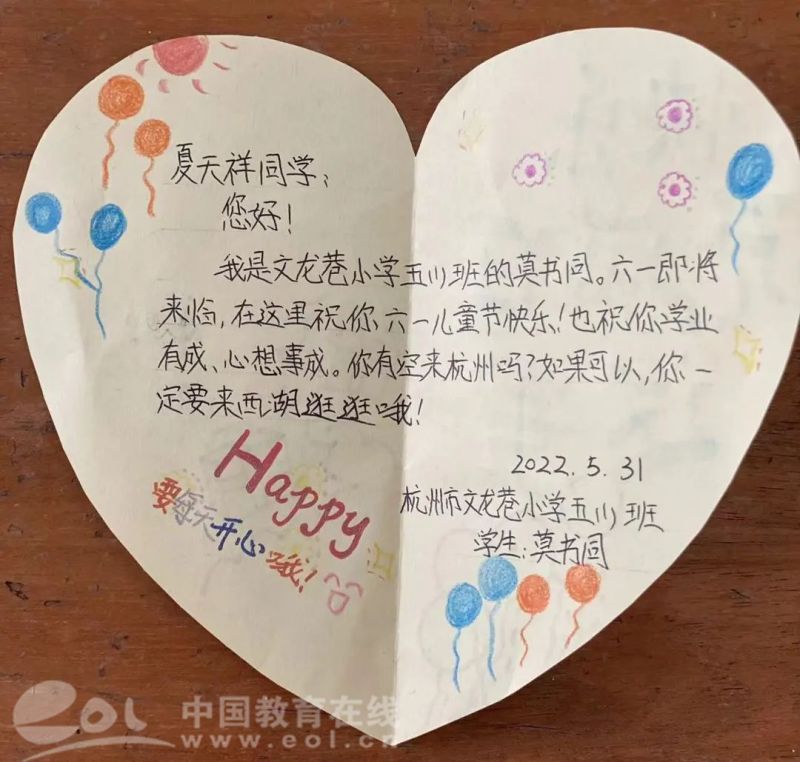 夏天祥同学:
您好!
我是文龙巷小学五(1)班的莫书同。六一即将
来临,在这里祝你六一儿童节快乐!也祝你学业
有成、心想事成。你有空来杭州吗?如果可以,你一
定要来西湖逛逛哦!
2022.5.31
杭州市文龙巷小学五(1)班
学生:莫书同
Happy
要每天开心哦!
eol 中国教育在线
www.eol.cn